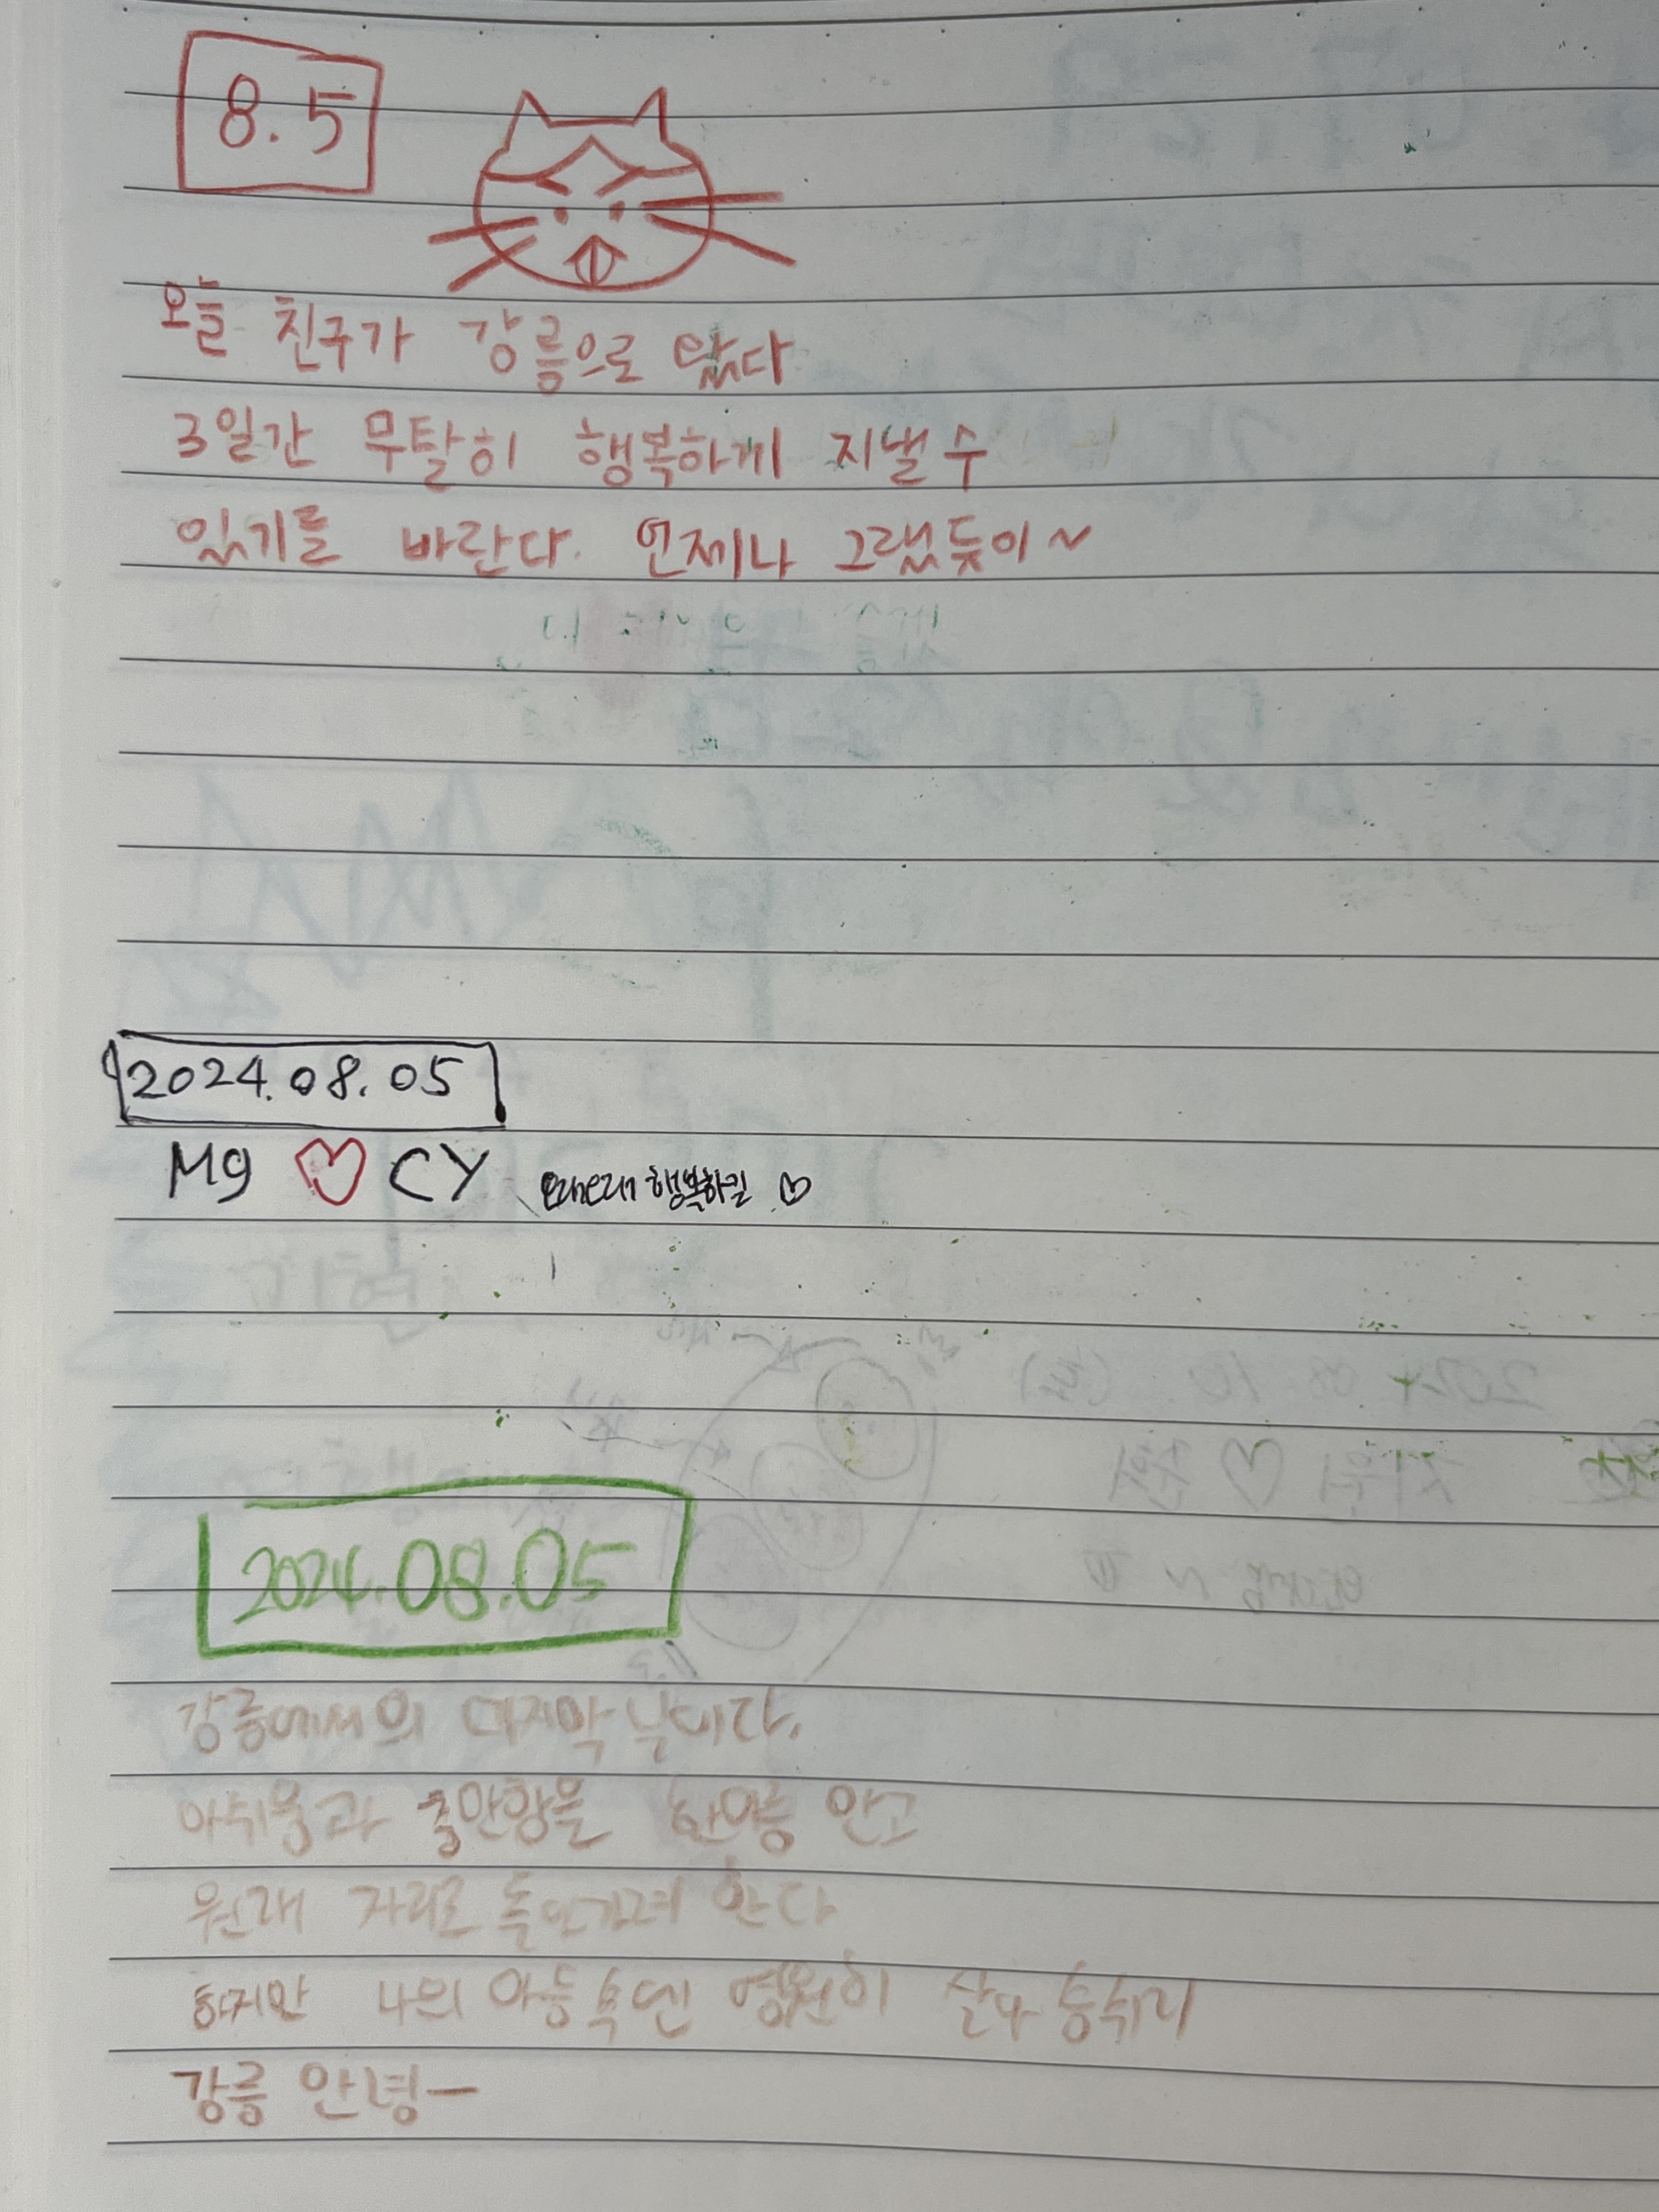 8.5
오늘 친구가 강릉으로 왔다
3일간 무탈히 행복하게 지낼 수
있기를 바란다. 언제나 그랬듯이~
2024.08.05
Mg ♡ CY 오래오래 행복하길 ♡
2024.08.05
강릉에서의 마지막 날이다.
아쉬움과 출안함을 한아름 안고
원래 자리로 돌아가려 한다
하지만 나의 마음 속엔 영원히 살아 숨쉬리
강릉 안녕-